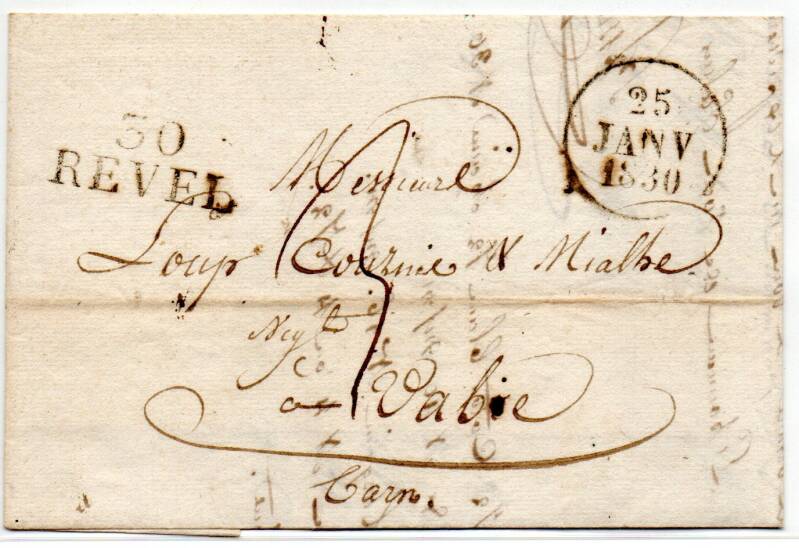 30
REVEL
25
JANV
1830
Messieurs
Loup Cournié & Mialhe
Negts
a Vabre
Tarn.
3